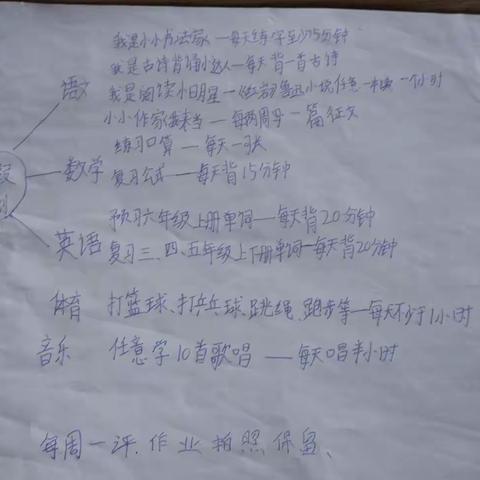 我是小小书法家—每天练字至少15分钟
我是古诗背诵小达人—每天背一首古诗
语文
我是阅读小明星—
鲁迅小说任意一本 一个小时
小小作家我来当—每两周写一篇征文
练习口算—每天一张
数学
复习公式—每天背15分钟
预习六年级上册单词—每天背20分钟
英语
复习三、四、五年级上下册单词—每天背20分钟
体育 打篮球、打乒乓球、跳绳、跑步等—每天不少于1小时
音乐 任意学10首歌唱 —每天唱半小时
每周一评.作业拍照保留、